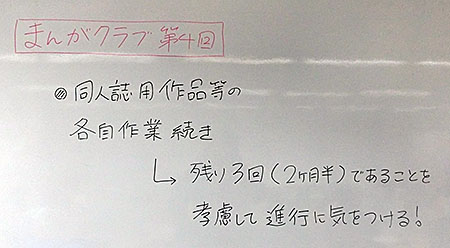 まんがクラブ 第4回
◎同人誌用作品等の
各自作業 続き
↳ 残り3回(2ヶ月半)であることを
考慮して進行に気をつける!